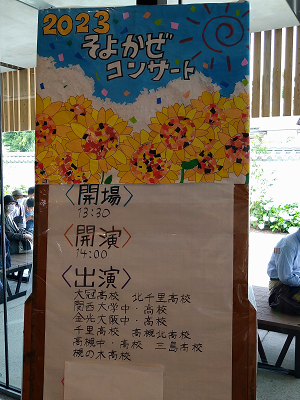 2023
そよかぜ
コンサート
〈開場〉
13:30
〈開演〉
14:00
〈出演〉
大冠高校 北千里高校
関西大学中・高校
金光大阪中・高校
千里高校 高槻北高校
高槻中・高校 三島高校
槻の木高校